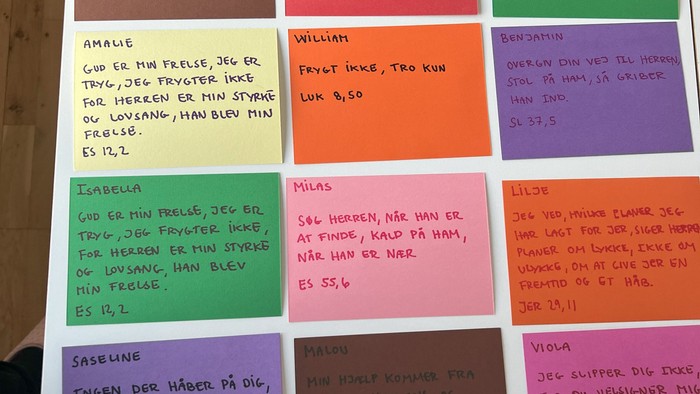 AMALIE
GUD ER MIN FRELSE, JEG ER
TRYG, JEG FRYGTER IKKE
FOR HERREN ER MIN STYRKE
OG LOVSANG, HAN BLEV MIN
FRELSE.
ES 12,2
WILLIAM
FRYGT IKKE, TRO KUN
LUK 8,50
BENJAMIN
OVERGIV DIN VEJ TIL HERREN,
STOL PÅ HAM, SÅ GRIBER
HAN IND.
SL 37,5
ISABELLA
GUD ER MIN FRELSE, JEG ER
TRYG, JEG FRYGTER IKKE,
FOR HERREN ER MIN STYRKE
OG LOVSANG, HAN BLEV
MIN FRELSE.
ES 12,2
MILAS
SØG HERREN, NÅR HAN ER
AT FINDE, KALD PÅ HAM,
NÅR HAN ER NÆR
ES 55,6
LILJE
JEG VED, HVILKE PLANER JEG
HAR LAGT FOR JER, SIGER HERREN
PLANER OM LYKKE, IKKE OM
ULYKKE, OM AT GIVE JER EN
FREMTID OG ET HÅB.
JER 29,11
SASELINE
INGEN DER HÅBER PÅ DIG,
MALOU
MIN HJÆLP KOMMER FRA
VIOLA
JEG SLIPPER DIG IKKE,
DU VELSIGNER MIG